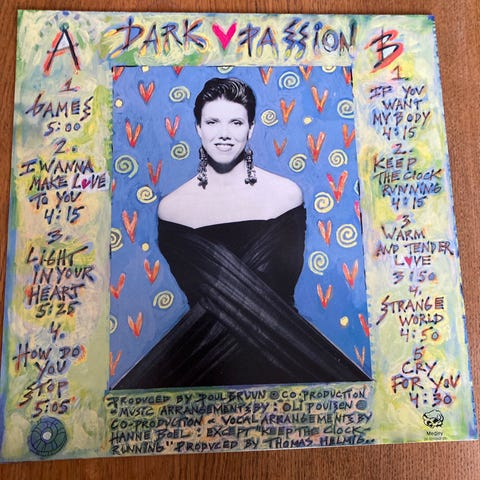 A DARK PASSION B
1.
GAMES
5:00
2.
I WANNA
MAKE LOVE
TO YOU
4:15
3.
LIGHT
IN YOUR
HEART
5:25
4.
HOW DO
YOU
STOP
5:05
1.
IF YOU
WANT
MY BODY
4:15
2.
KEEP
THE CLOCK
RUNNING
4:15
3
WARM
AND TENDER
LOVE
3:50
4.
STRANGE
WORLD
4:50
5
CRY
FOR YOU
4:30
PRODUCED BY POUL BRUUN CO-PRODUCTION
MUSIC ARRANGEMENTS BY: OLI POULSEN
CO-PRODUCTION VOCAL ARRANGEMENTS BY
HANNE BOEL: EXCEPT "KEEP THE CLOCK
RUNNING" PRODUCED BY THOMAS HELMIG..
Medley